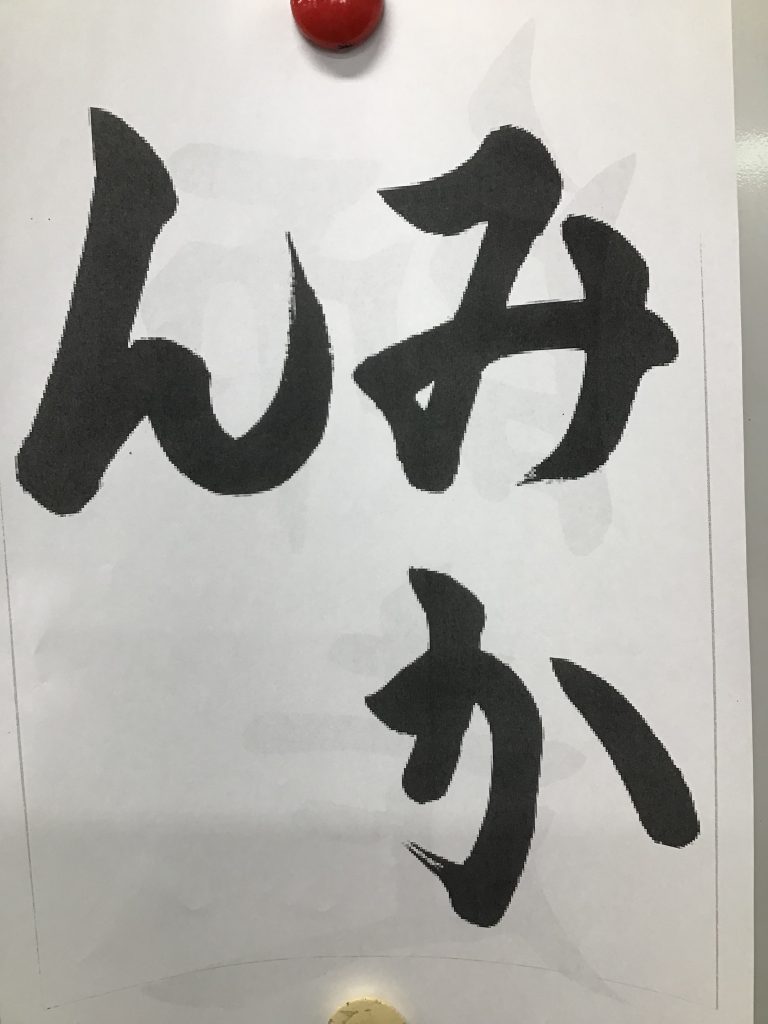 みか
ん